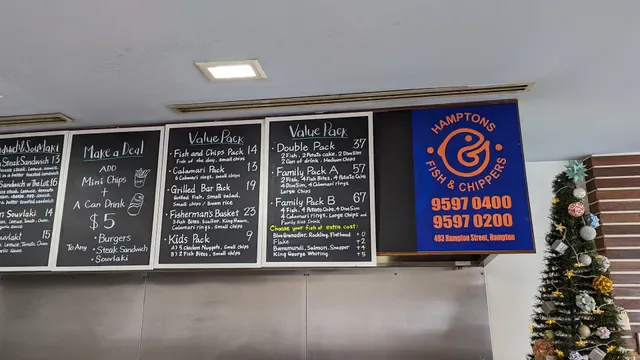 Sandwich & Souvlaki
Steak Sandwich 13
Sandwich w The Lot 16
Souvlaki 14
15
Make a Deal
ADD
Mini Chips
+
A Can Drink
$5
To Any
• Burgers
• Steak Sandwich
• Souvlaki
Value Pack
• Fish and Chips Pack 14
Fish of the day, small chips
• Calamari Pack 13
6 Calamari rings, small chips
• Grilled Bar Pack 19
Grilled Fish, Small salad,
Small chips / Brown rice
• Fisherman's Basket 23
Calamari rings, Small chips
• Kids Pack 9
A) 4 Chicken Nuggets, Small chips
B) 2 Fish Bites, Small chips
Value Pack
Double Pack 37
2 Fish, 2 Potato Cake, 2 DimSim
2 Can of drink, Medium Chips
Family Pack A 57
4 DimSim, 4 Calamari rings
Large Chips
Family Pack B 67
4 Fish, 4 Potato Cake, 4 DimSim
4 Calamari rings, Large Chips and
Family Size Drink
Choose your fish at extra cost:
Blue Grenadier, Rockling, Flathead + 0
Flake
Barramundi, Salmon, Snapper
King George Whiting + 5
HAMPTONS
&
FISH & CHIPPERS
9597 0400
9597 0200
493 Hampton Street, Hampton